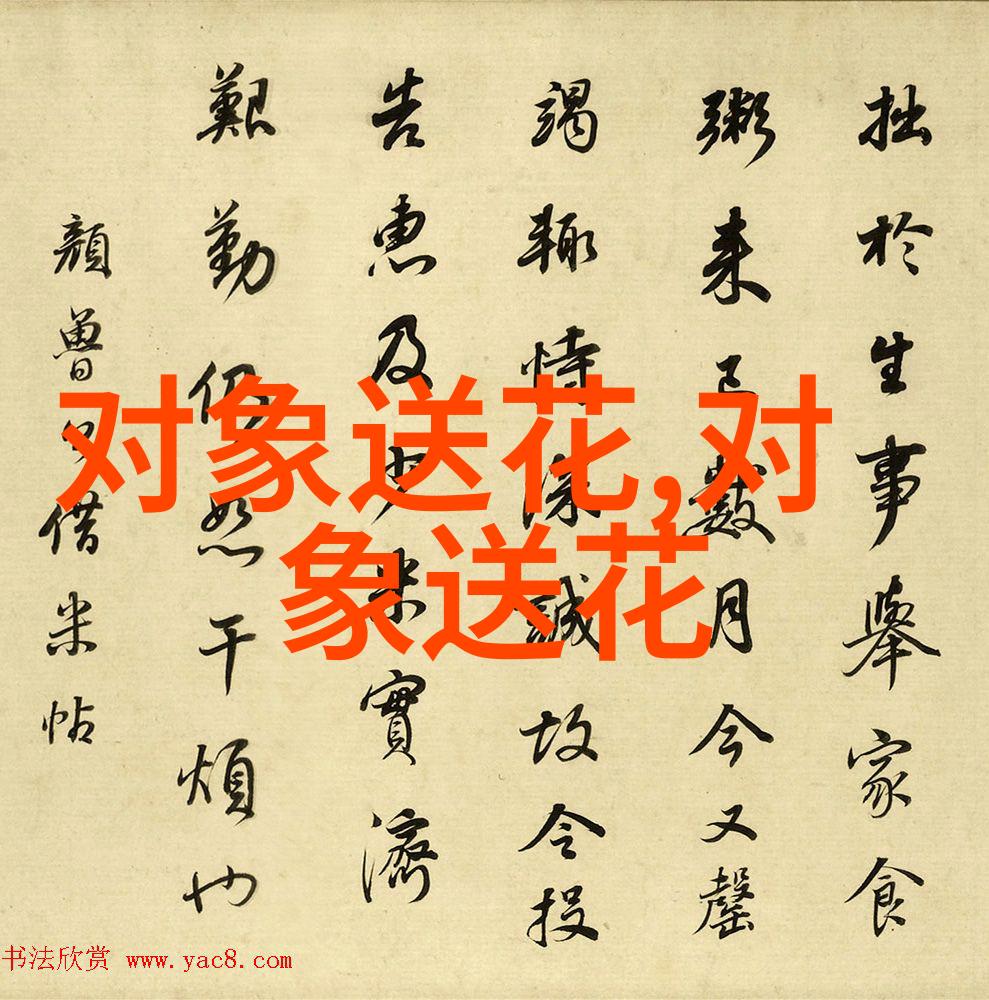 拙於生事舉家食
粥来已數月今又罄
竭輙恃深誠故令投
告惠及少米實濟
艱勤仍恕干煩也
顏魯公借米帖
对象送花,对
象送花
书法欣赏 www.yac8.com